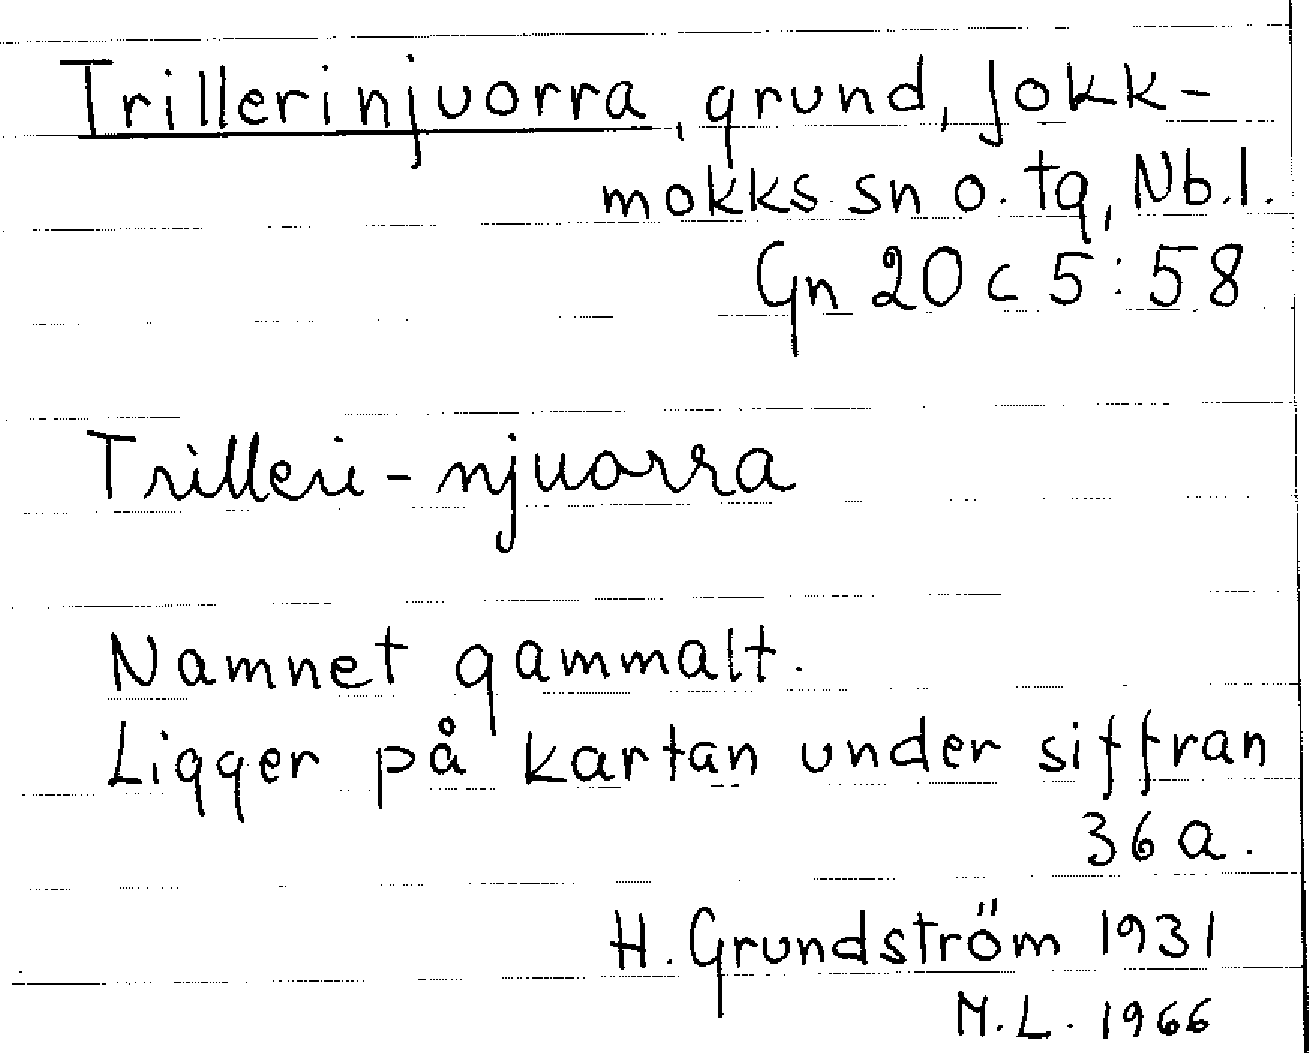 Trillerinjuorra, grund, Jokk-
mokks sn o. tg, Nb.l.
Gn 20 c 5:58
Trilleri-njuorra
Namnet gammalt.
Ligger på kartan under siffran
36 a.
H. Grundström 1931
M.L. 1966